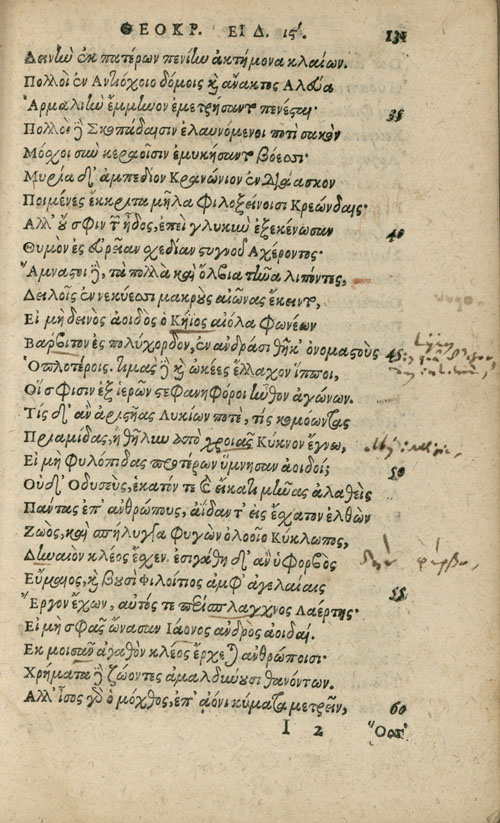 ΘΕΟΚΡ. ΕΙΔ. ις΄. 131
Δεινὴν ἐκ πατέρων πενίην ἀκτήμονα κλαίων.
Πολλοὶ ἐν Ἀντιόχοιο δόμοις καὶ ἄνακτος Ἀλεύα
Ἁρμαλιὴν ἔμμηνον ἐμετρήσαντο πενέσται· 35
Πολλοὶ δὲ Σκοπάδαισιν ἐλαυνόμενοι ποτὶ σακὸν
Μόσχοι σὺν κεραοῖσιν ἐμυκήσαντο βόεσσι·
Μυρία δ' ἀμπεδίον Κρανώνιον ἐνδιάασκον
Ποιμένες ἔκκριτα μῆλα φιλοξείνοισι Κρεώνδαις·
Ἀλλ' οὔ σφιν τῶν ἦδος, ἐπεὶ γλυκὺν ἐξεκένωσαν 40
Θυμὸν ἐς εὐρεῖαν σχεδίαν στυγνοῦ Ἀχέροντος·
Ἄμναστοι δὲ, τὰ πολλὰ καὶ ὄλβια τῆνα λιπόντες,
Δειλοῖς ἐν νεκύεσσι μακροὺς αἰῶνας ἔκειντο,
Εἰ μὴ δεινὸς ἀοιδὸς ὁ Κήϊος αἰόλα φωνέων
Βάρβιτον ἐς πολύχορδον, ἐν ἀνδράσι θῆκ' ὀνομαστοὺς 45
Ὁπλοτέροις. τιμᾶς δὲ καὶ ὠκέες ἔλλαχον ἵπποι,
Οἵ σφισιν ἐξ ἱερῶν στεφανηφόροι ἦνθον ἀγώνων.
Τίς δ' ἂν ἀριστῆας Λυκίων ποτὲ, τίς κομόωντας
Πριαμίδας, ἢ θῆλυν ἀπὸ χροιᾶς Κύκνον ἔγνω,
Εἰ μὴ φυλόπιδας προτέρων ὕμνησαν ἀοιδοί; 50
Οὐδ' Ὀδυσεὺς, ἑκατόν τε καὶ εἴκατι μῆνας ἀλαθεὶς
Πάντας ἐπ' ἀνθρώπους, ἀΐδαν τ' εἰς ἔσχατον ἐλθὼν
Ζωὸς, καὶ σπήλυγγα φυγὼν ὀλοοῖο Κύκλωπος,
Δηναιὸν κλέος ἔσχεν. ἐσιγάθη δ' ἂν ὑφορβὸς
Εὔμαιος, καὶ βουσὶ Φιλοίτιος ἀμφ' ἀγελαίαις 55
Ἔργον ἔχων, αὐτός τε περίσπλαγχνος Λαέρτης·
Εἰ μὴ σφᾶς ὤνασαν Ἰάονος ἀνδρὸς ἀοιδαί.
Ἐκ μοισᾶν ἀγαθὸν κλέος ἔρχεται ἀνθρώποισι·
Χρήματα δὲ ζώοντες ἀμαλδύνουσι θανόντων.
Ἀλλ' ἶσος γὰρ ὁ μόχθος, ἐπ' ᾀόνι κύματα μετρεῖν, 60
I 2 Ὅσσ'